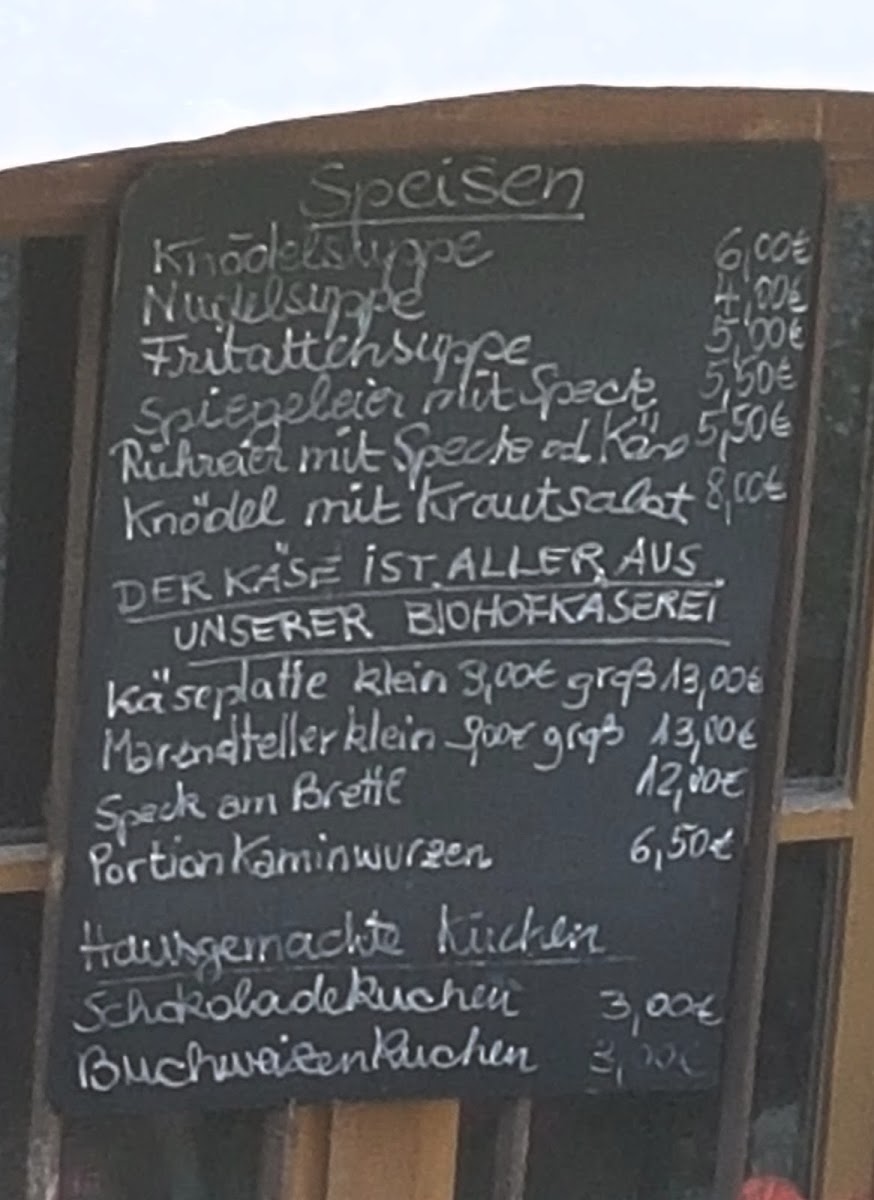 Speisen
Knödelsuppe 6,00€
Nudelsuppe 4,00€
Fritattensuppe 5,00€
Spiegeleier mit Speck 5,50€
Rühreier mit Speck od Käse 5,50€
Knödel mit Krautsalat 8,00€
DER KÄSE IST ALLER AUS
UNSERER BIOHOFKÄSEREI
Käseplatte klein 9,00€ groß 13,00€
Marendteller klein 9,00€ groß 13,00€
Speck am Brettl 12,00€
Portion Kaminwurzen 6,50€
Hausgemachte Kuchen
Schokoladekuchen 3,00€
Buchweizenkuchen 3,00€